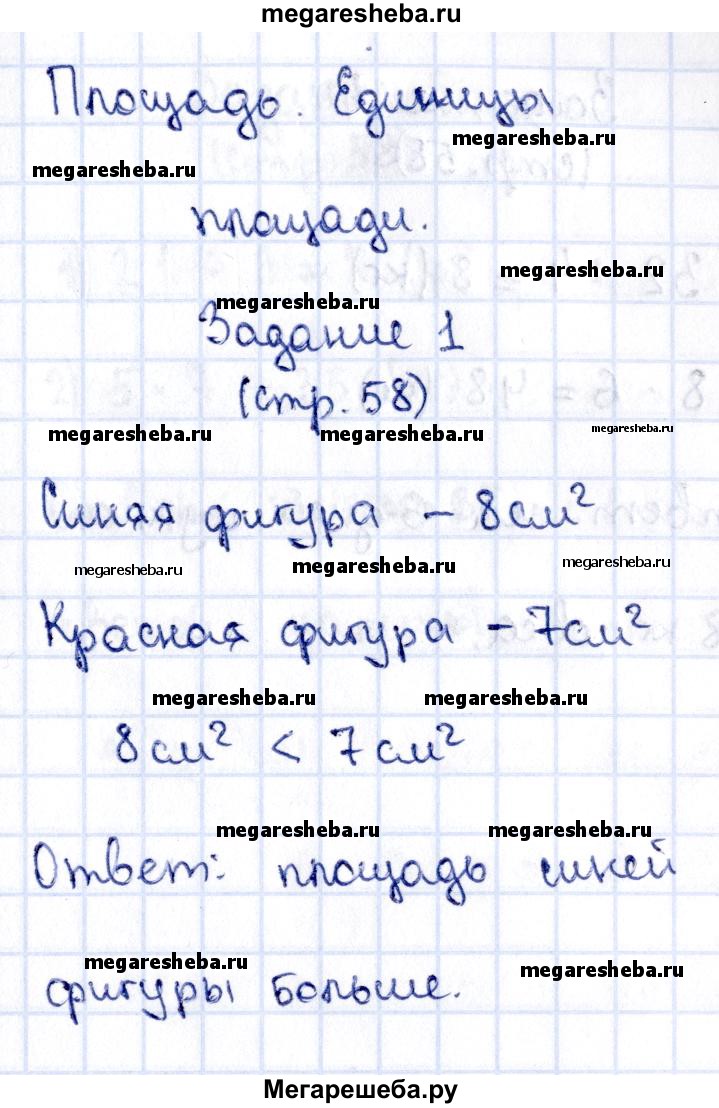 megaresheba.ru
Площадь. Единицы
megaresheba.ru
megaresheba.ru
площади.
megaresheba.ru
megaresheba.ru
Задание 1
(стр. 58)
megaresheba.ru megaresheba.ru megaresheba.ru
Синяя фигура – 8 см²
megaresheba.ru megaresheba.ru megaresheba.ru
Красная фигура – 7 см²
megaresheba.ru megaresheba.ru
8 см² < 7 см²
megaresheba.ru megaresheba.ru
Ответ: площадь синей
megaresheba.ru megaresheba.ru
фигуры больше.
Мегарешеба.ру